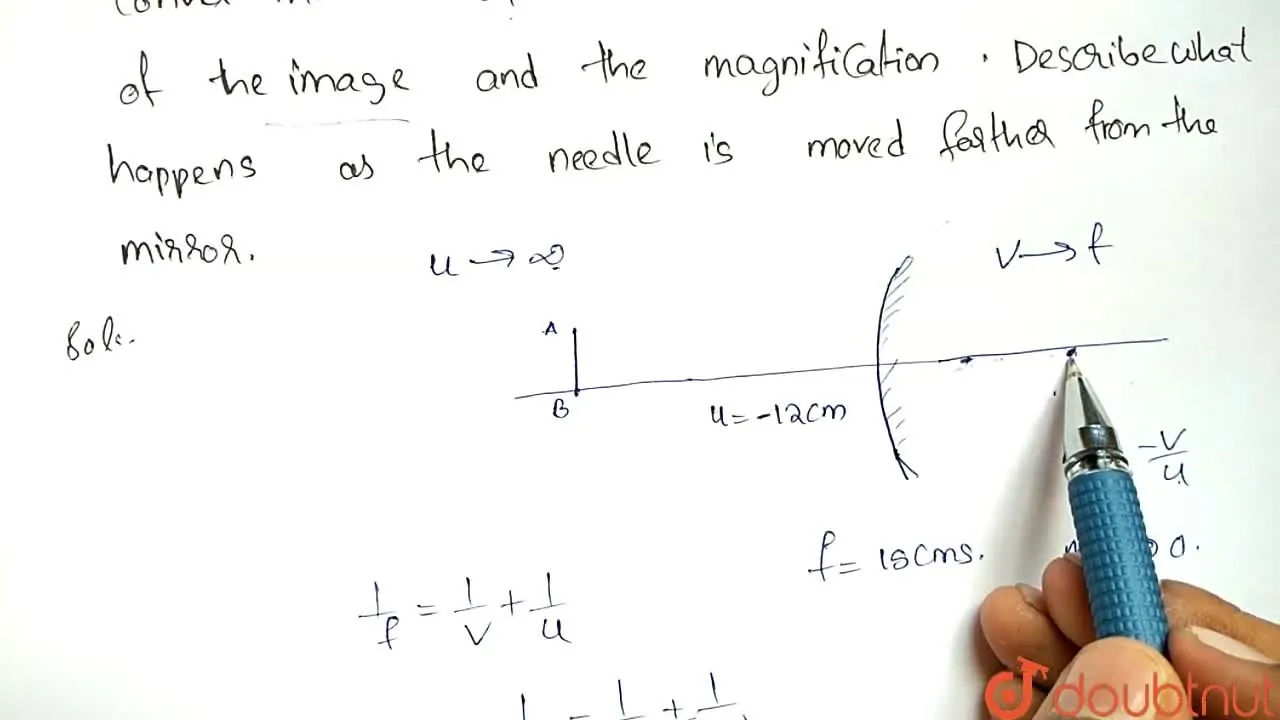 of the image and the magnification. Describe what
happens as the needle is moved farther from the
mirror.
u → ∞
v → f
Sol:
A
B
u = -12cm
-v/u
f = 15cms.
0.
1/f = 1/v + 1/u
doubtnut